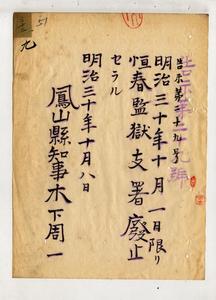 告示第二十九號
告示第二十九号
明治三十年十月一日限リ
恒春監獄支署廢止
セラル
明治三十年十月八日
鳳山縣知事木下周一